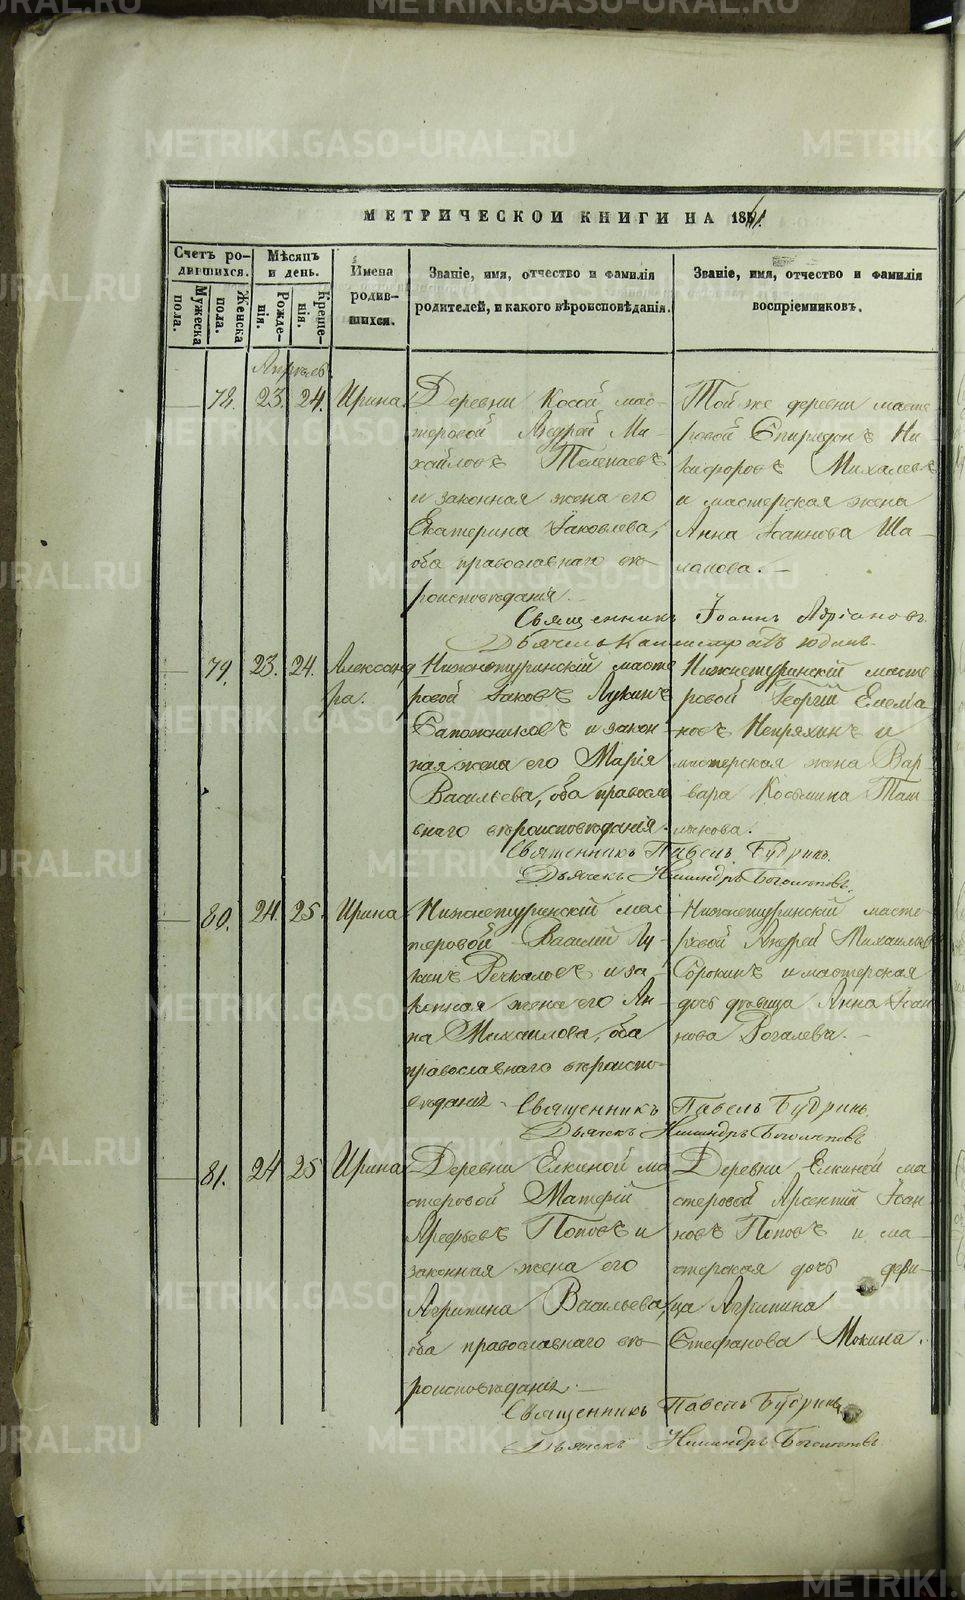 METRIKI.GASO-URAL.RU
МЕТРИЧЕСКОИ КНИГИ НА 1861.
Счетъ ро-
дившихся.
Мужеска
пола.
Женска
пола.
Мѣсяцъ
и день.
Рожде-
нія.
Креще-
нія.
Имена
родив-
шихся.
Званіе, имя, отчество и фамилія
родителей, и какого вѣроисповѣданія.
Званіе, имя, отчество и фамилія
воспріемниковъ.
Апрѣль.
78. 23. 24. Ирина.
Деревни Косой мас-
теровой Андрей Ми-
хайловъ
и законная жена его
Екатерина Іаковлева,
оба православнаго вѣ-
роисповѣданія.
Той же деревни масте-
ровой Спиридонъ Ни-
кифоровъ Михалевъ
и мастерская жена
Анна Іоаннова Ша-
Священникъ Іоаннъ Адріановъ
Дьячекъ
79. 23. 24. Александ
ра.
Нижнетуринскій масте
ровой Іаковъ Лукинъ
Сапожниковъ и закон
ная жена его Марія
Васильева, оба правосла
внаго вѣроисповѣданія.
Нижнетуринскій масте
ровой Георгій Емелia
новъ Непряхинъ и
мастерская жена Вар
вара Космина
Священникъ Павелъ Будринъ.
Дьячекъ Никандръ Боголюповъ.
80. 24. 25. Ирина
Нижнетуринскій мас-
теровой Василій Лу-
кинъ Речкаловъ и за-
конная жена его Ан-
на Михаилова, оба
православнаго вѣроиспо-
вѣданія
Нижнетуринскій масте-
ровой Андрей Михаиловъ
Сорокинъ и мастерская
дочь дѣвица Анна Іоан
нова Рогалева.
Священникъ Павелъ Будринъ
Дьячекъ Никандръ Боголюповъ
81. 24 25 Ирина
Деревни Елкиной ма
стеровой Матфій
Арсеньевъ Поповъ и
законная жена его
Агрипина Васильева,
оба православнаго вѣ-
роисповѣданія.
Деревни Елкиной ма
стеровой Арсентій Іоан
новъ Поповъ и ма-
стерская дочь дѣви-
ца Агрипина
Стефанова Мокина.
Священникъ Павелъ Будринъ
Дьячекъ Никандръ Боголюповъ